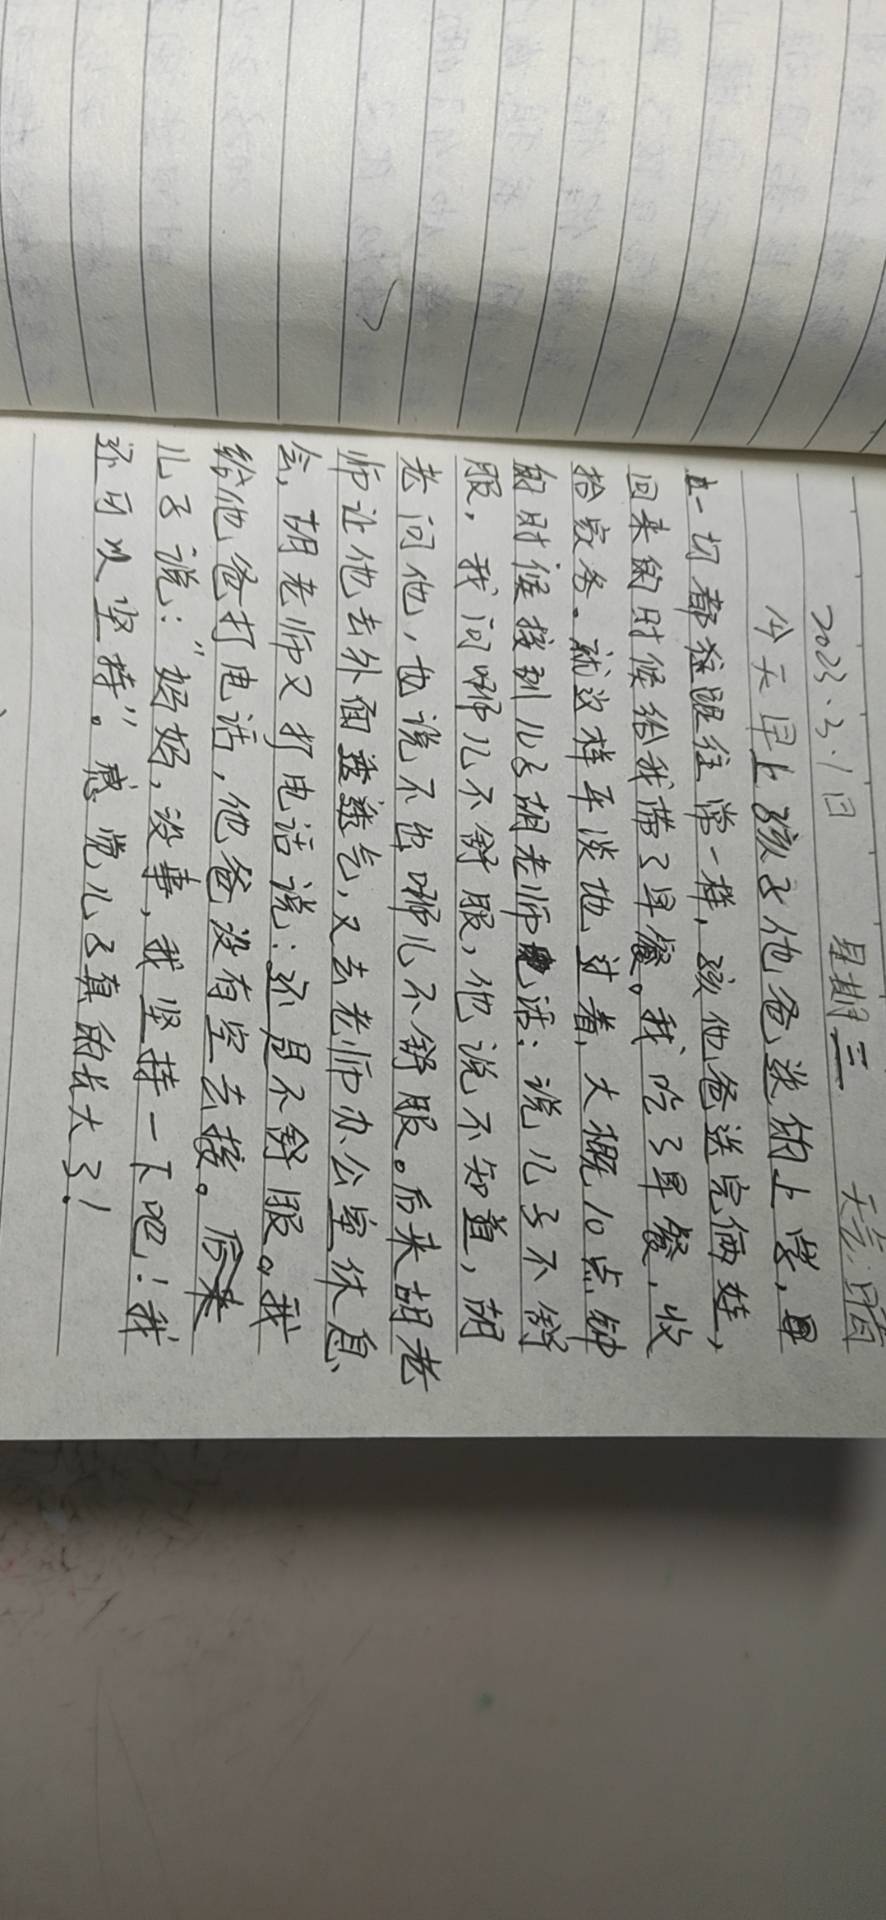 2023.3.1日 星期三 天气:晴
今天早上孩子他爸送的上学,早
上一切都跟往常一样,孩他爸送完俩娃,
回来的时候给我带了早餐。我吃了早餐,收
拾家务。就这样平淡地过着,大概10点钟
的时候接到儿子胡老师电话:说儿子不舒
服,我问哪儿不舒服,他说不知道,胡
老问他,也说不出哪儿不舒服。后来胡老
师让他去外面透透气,又去老师办公室休息
会,胡老师又打电话说:还是不舒服。我
给他爸打电话,他爸没有空去接。后来
儿子说:“妈妈,没事,我坚持一下吧!我
还可以坚持”。感觉儿子真的长大了!